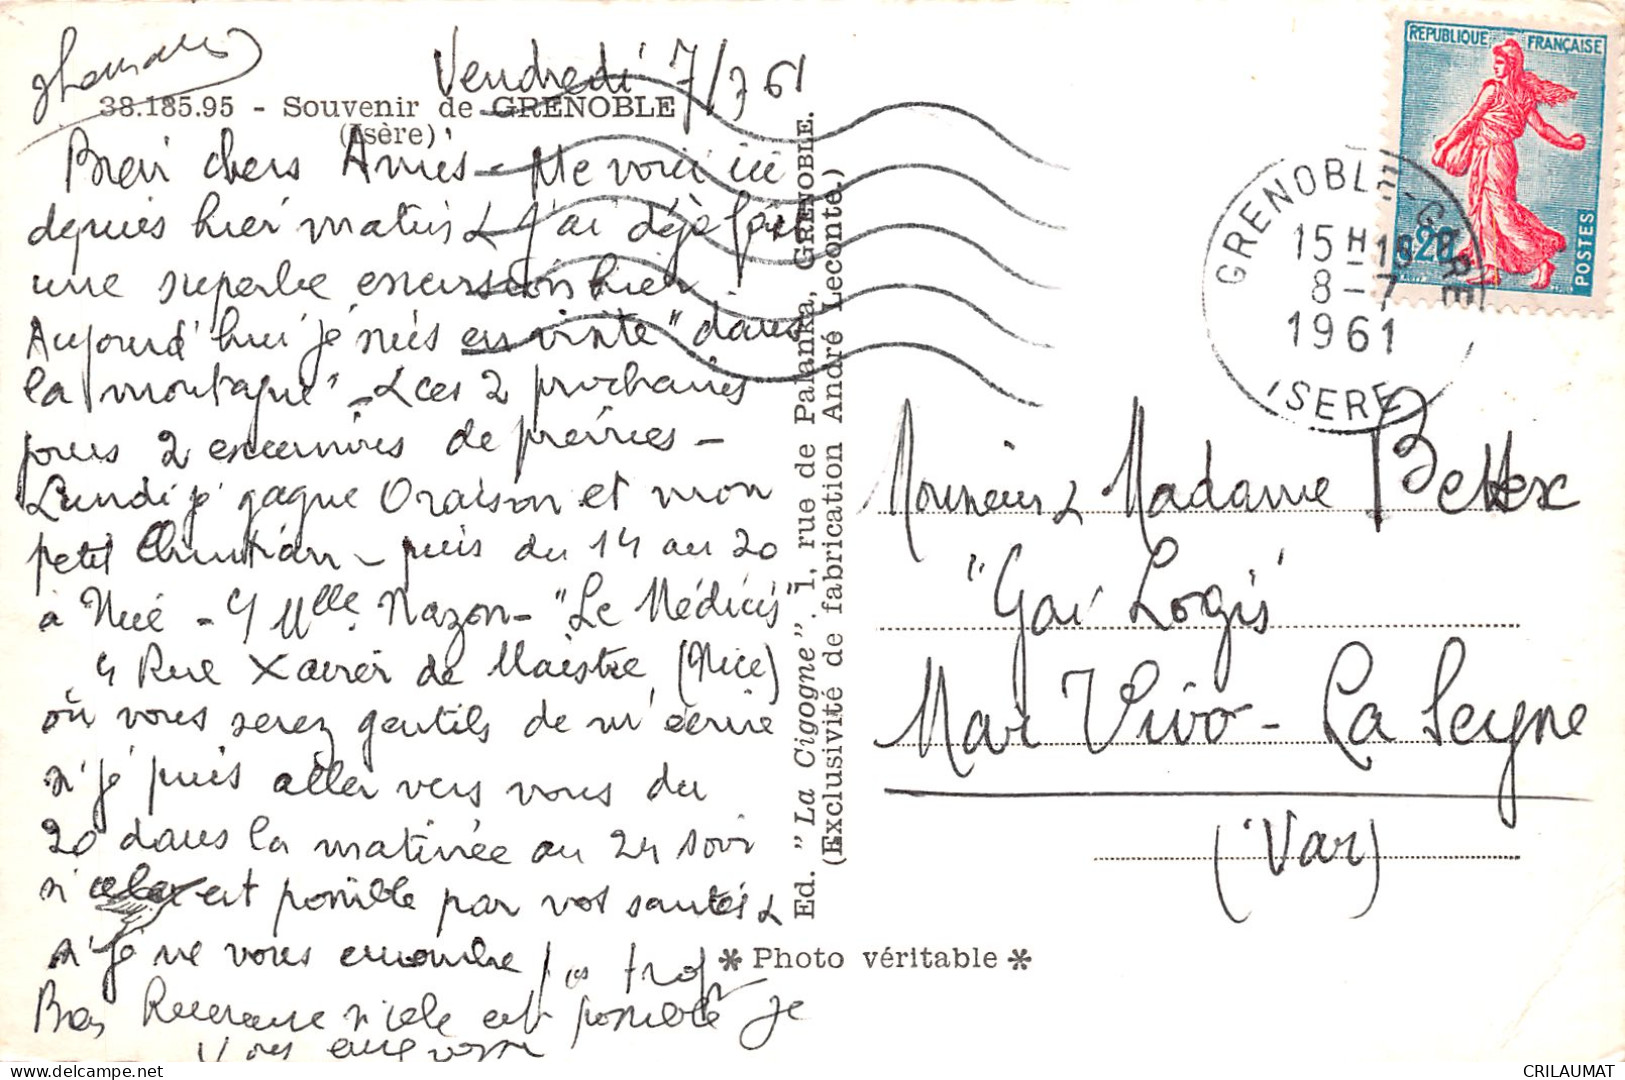 Vendredi 7/7 61
38.185.95 - Souvenir de GRENOBLE
(Isère)
Bien chers Amis - Me voici ici
depuis hier matin & j'ai déjà fait
une superbe excursion hier
Aujourd'hui je suis en visite "dans
la montagne" - & ces 2 prochains
jours 2 excursions de prévues -
Lundi je gagne Oraison et mon
petit Christian - puis du 14 au 20
à Nice - Mlle Nazon - "Le Médicis"
4 Rue Xavier de Maistre (Nice)
où vous serez gentils de m'écrire
si je puis aller vers vous du
20 dans la matinée au 24 soir
si cela est possible par vos santés &
si je ne vous encombre pas trop
si cela est possible je
vous
Ed. "La Cigogne". 1, rue de Palanka, GRENOBLE.
(Exclusivité de fabrication André Leconte.)
* Photo véritable *
REPUBLIQUE FRANÇAISE
0,20
POSTES
GRENOBLE-GARE
15 H 15
8-7
1961
ISERE
Monsieur & Madame Bettex
"Gai Logis"
Mar Vivo - La Seyne
(Var)
CRILAUMAT